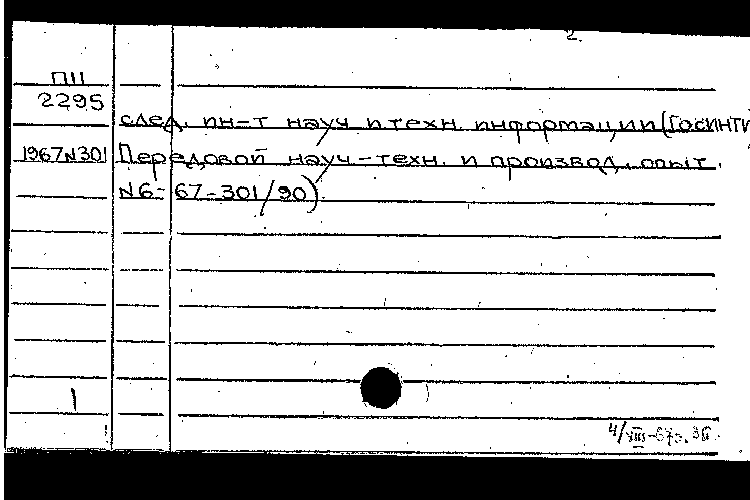 2.
П11
2295
след. ин-т науч и техн. информации (ГОСИНТИ
1967 N301 Передовой науч-техн. и производ. опыт.
N6-67-301/90)
1
4/VIII-67г.